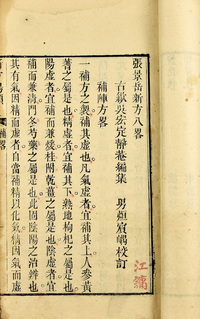 張景岳新方八畧
古歙吳宏定靜菴編集 男烜宸嶼校訂
補陣方畧
一補方之製補其虛也凡氣虛者宜補其上人參黃
蓍之屬是也精虛者宜補其下熟地枸杞之屬是也
陽虛者宜補而兼緩桂附乾薑之屬是也陰虛者宜
補而兼清門冬芍藥之屬是也此固陰陽之治辨也
其有氣因精而虛者自當補精以化氣精因氣而虛
補畧